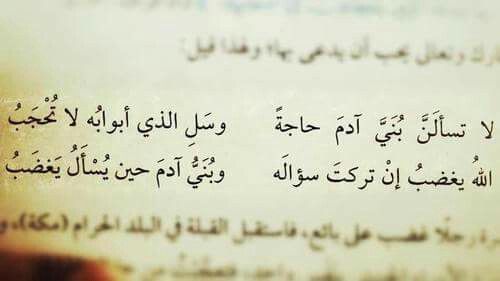 وتعالى يحب أن يدعى بها؛ ولهذا قيل:
لا تسألَنَّ بُنَيَّ آدمَ حاجةً وسَلِ الذي أبوابُه لا تُحْجَبُ
اللهُ يغضبُ إنْ تركتَ سؤالَه وبُنَيُّ آدمَ حين يُسْأَلُ يَغضَبُ
رجلًا غضب على بائع، فاستقبل القبلة في البلد الحرام (مكة)، و